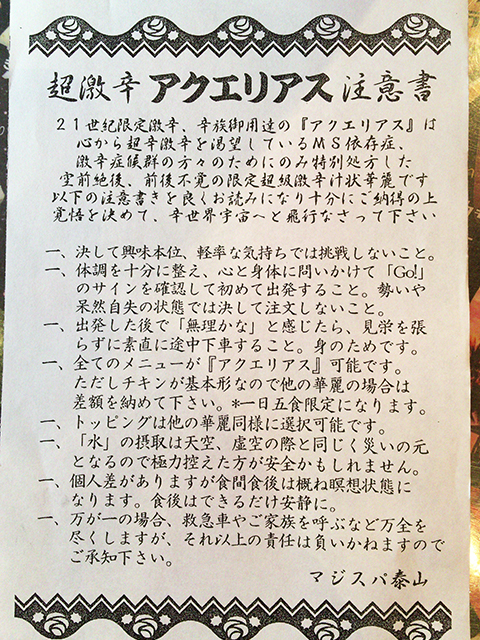 超激辛アクエリアス注意書
２１世紀限定激辛、辛族御用達の『アクエリアス』は
心から超辛激辛を渇望しているＭＳ依存症、
激辛症候群の方々のためにのみ特別処方した
空前絶後、前後不覚の限定超級激辛汁状華麗です
以下の注意書きを良くお読みになり十分にご納得の上
覚悟を決めて、辛世界宇宙へと飛行なさって下さい
一、決して興味本位、軽率な気持ちでは挑戦しないこと。
一、体調を十分に整え、心と身体に問いかけて「Go!」
のサインを確認して初めて出発すること。勢いや
呆然自失の状態では決して注文しないこと。
一、出発した後で「無理かな」と感じたら、見栄を張
らずに素直に途中下車すること。身のためです。
一、全てのメニューが『アクエリアス』可能です。
ただしチキンが基本形なので他の華麗の場合は
差額を納めて下さい。*一日五食限定になります。
一、トッピングは他の華麗同様に選択可能です。
一、「水」の摂取は天空、虚空の際と同じく災いの元
となるので極力控えた方が安全かもしれません。
一、個人差がありますが食間食後は概ね瞑想状態に
なります。食後はできるだけ安静に。
一、万が一の場合、救急車やご家族を呼ぶなど万全を
尽くしますが、それ以上の責任は負いかねますので
ご承知下さい。
マジスパ泰山